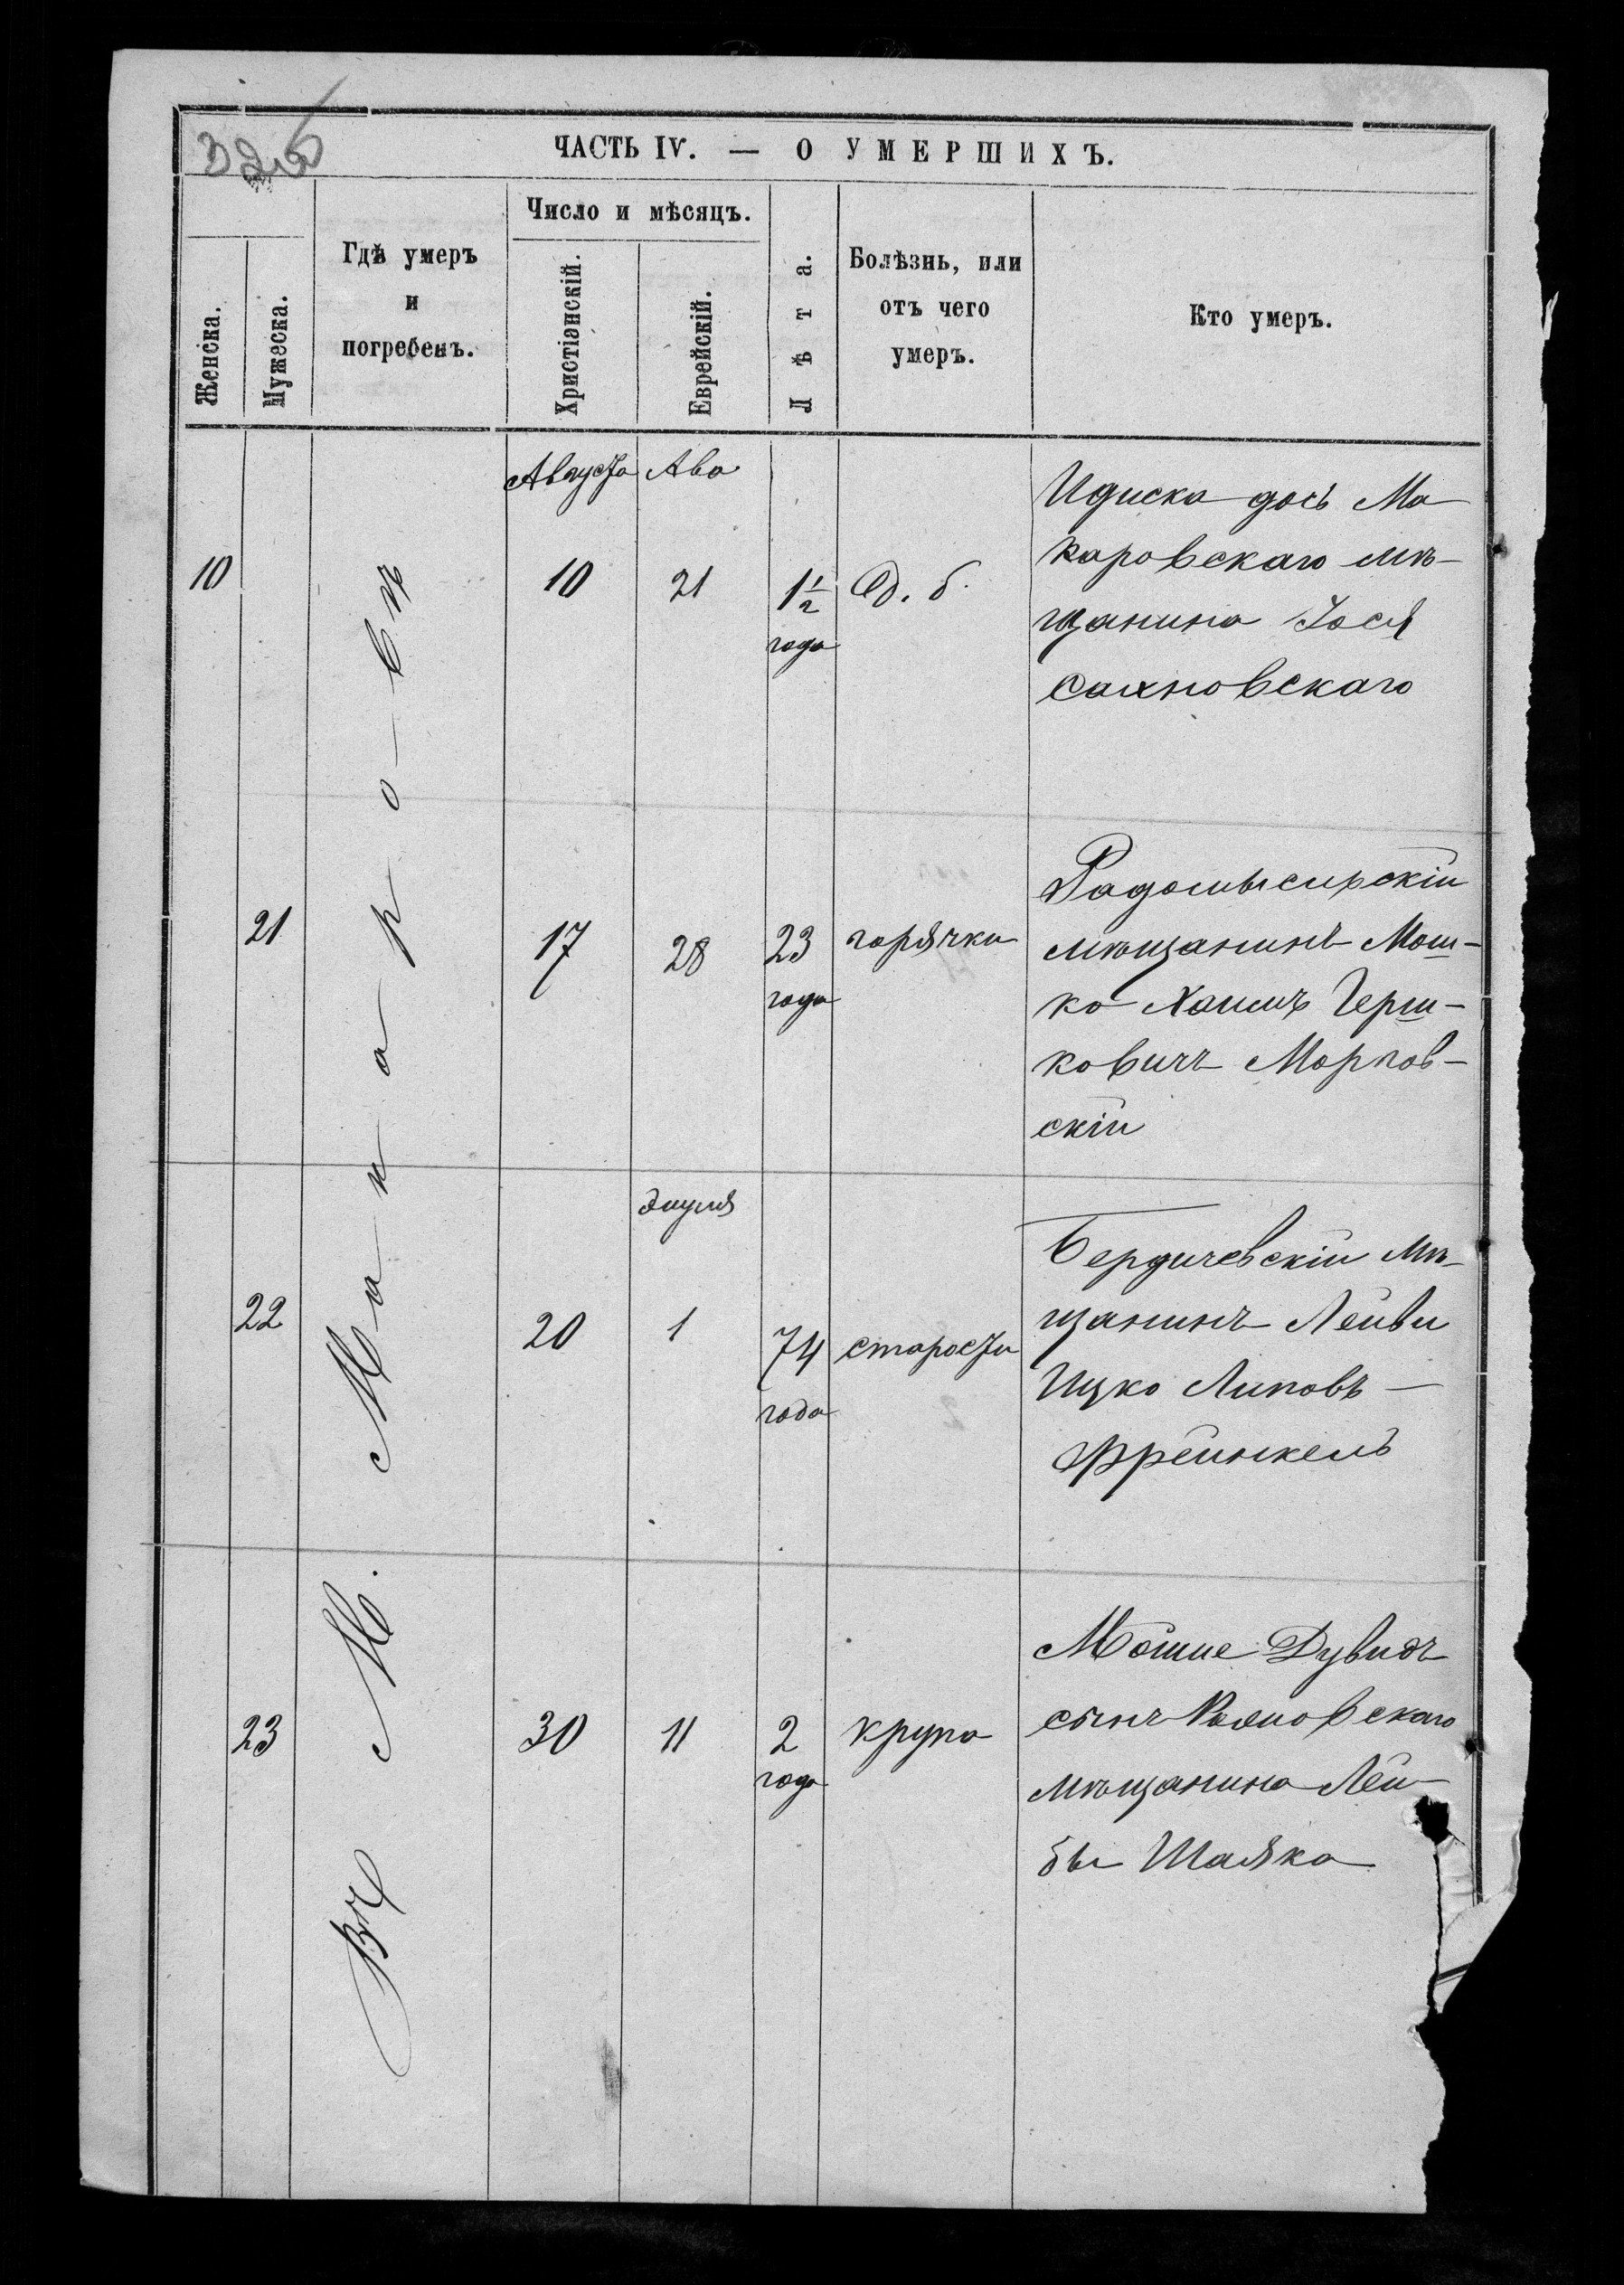 ЧАСТЬ IV. — О УМЕРШИХЪ.
Женска.
Мужеска.
Гдѣ умеръ
и
погребенъ.
Число и мѣсяцъ.
Христіанскій.
Еврейскій.
Лѣта.
Болѣзнь, или
отъ чего
умеръ.
Кто умеръ.
Въ М. Макаровѣ
Августа Ава
10 10 21 1½ года
Идиска дочь Ма
каровскаго мѣ-
щанина Іося
Сахновскаго
21 17 28 23 года горячки
Радомысльскій
мѣщанинъ Мош-
ко Хаимъ Герш-
ковичъМорков-
скій
Элуля
22 20 1 74 года старости
Бердичевскій мѣ-
щанинъ Лейви
Ицко Липовъ —
Фрейнкель
23 30 11 2 года крупа
Мошие Дувидъ
сынъ
мѣщанина Лей-
бы Шаяка